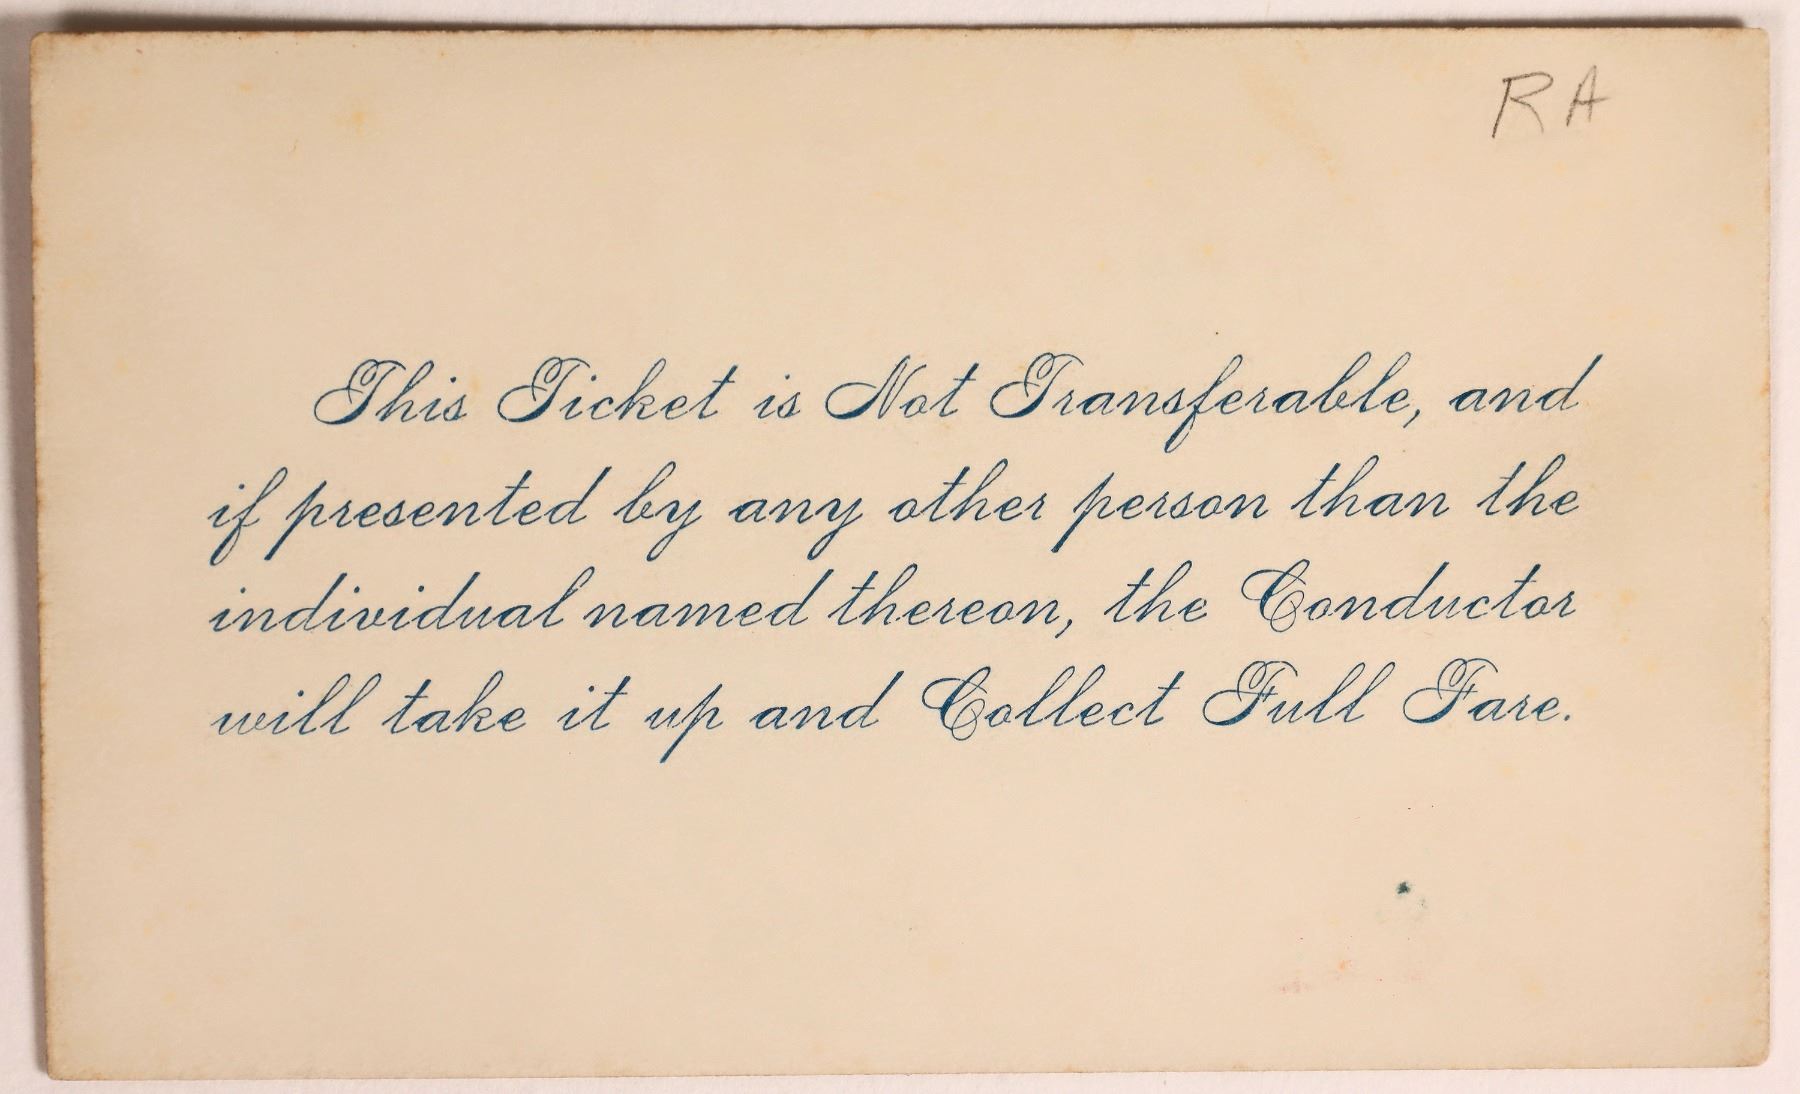 RA
This Ticket is Not Transferable, and
if presented by any other person than the
individual named thereon, the Conductor
will take it up and Collect Full Fare.